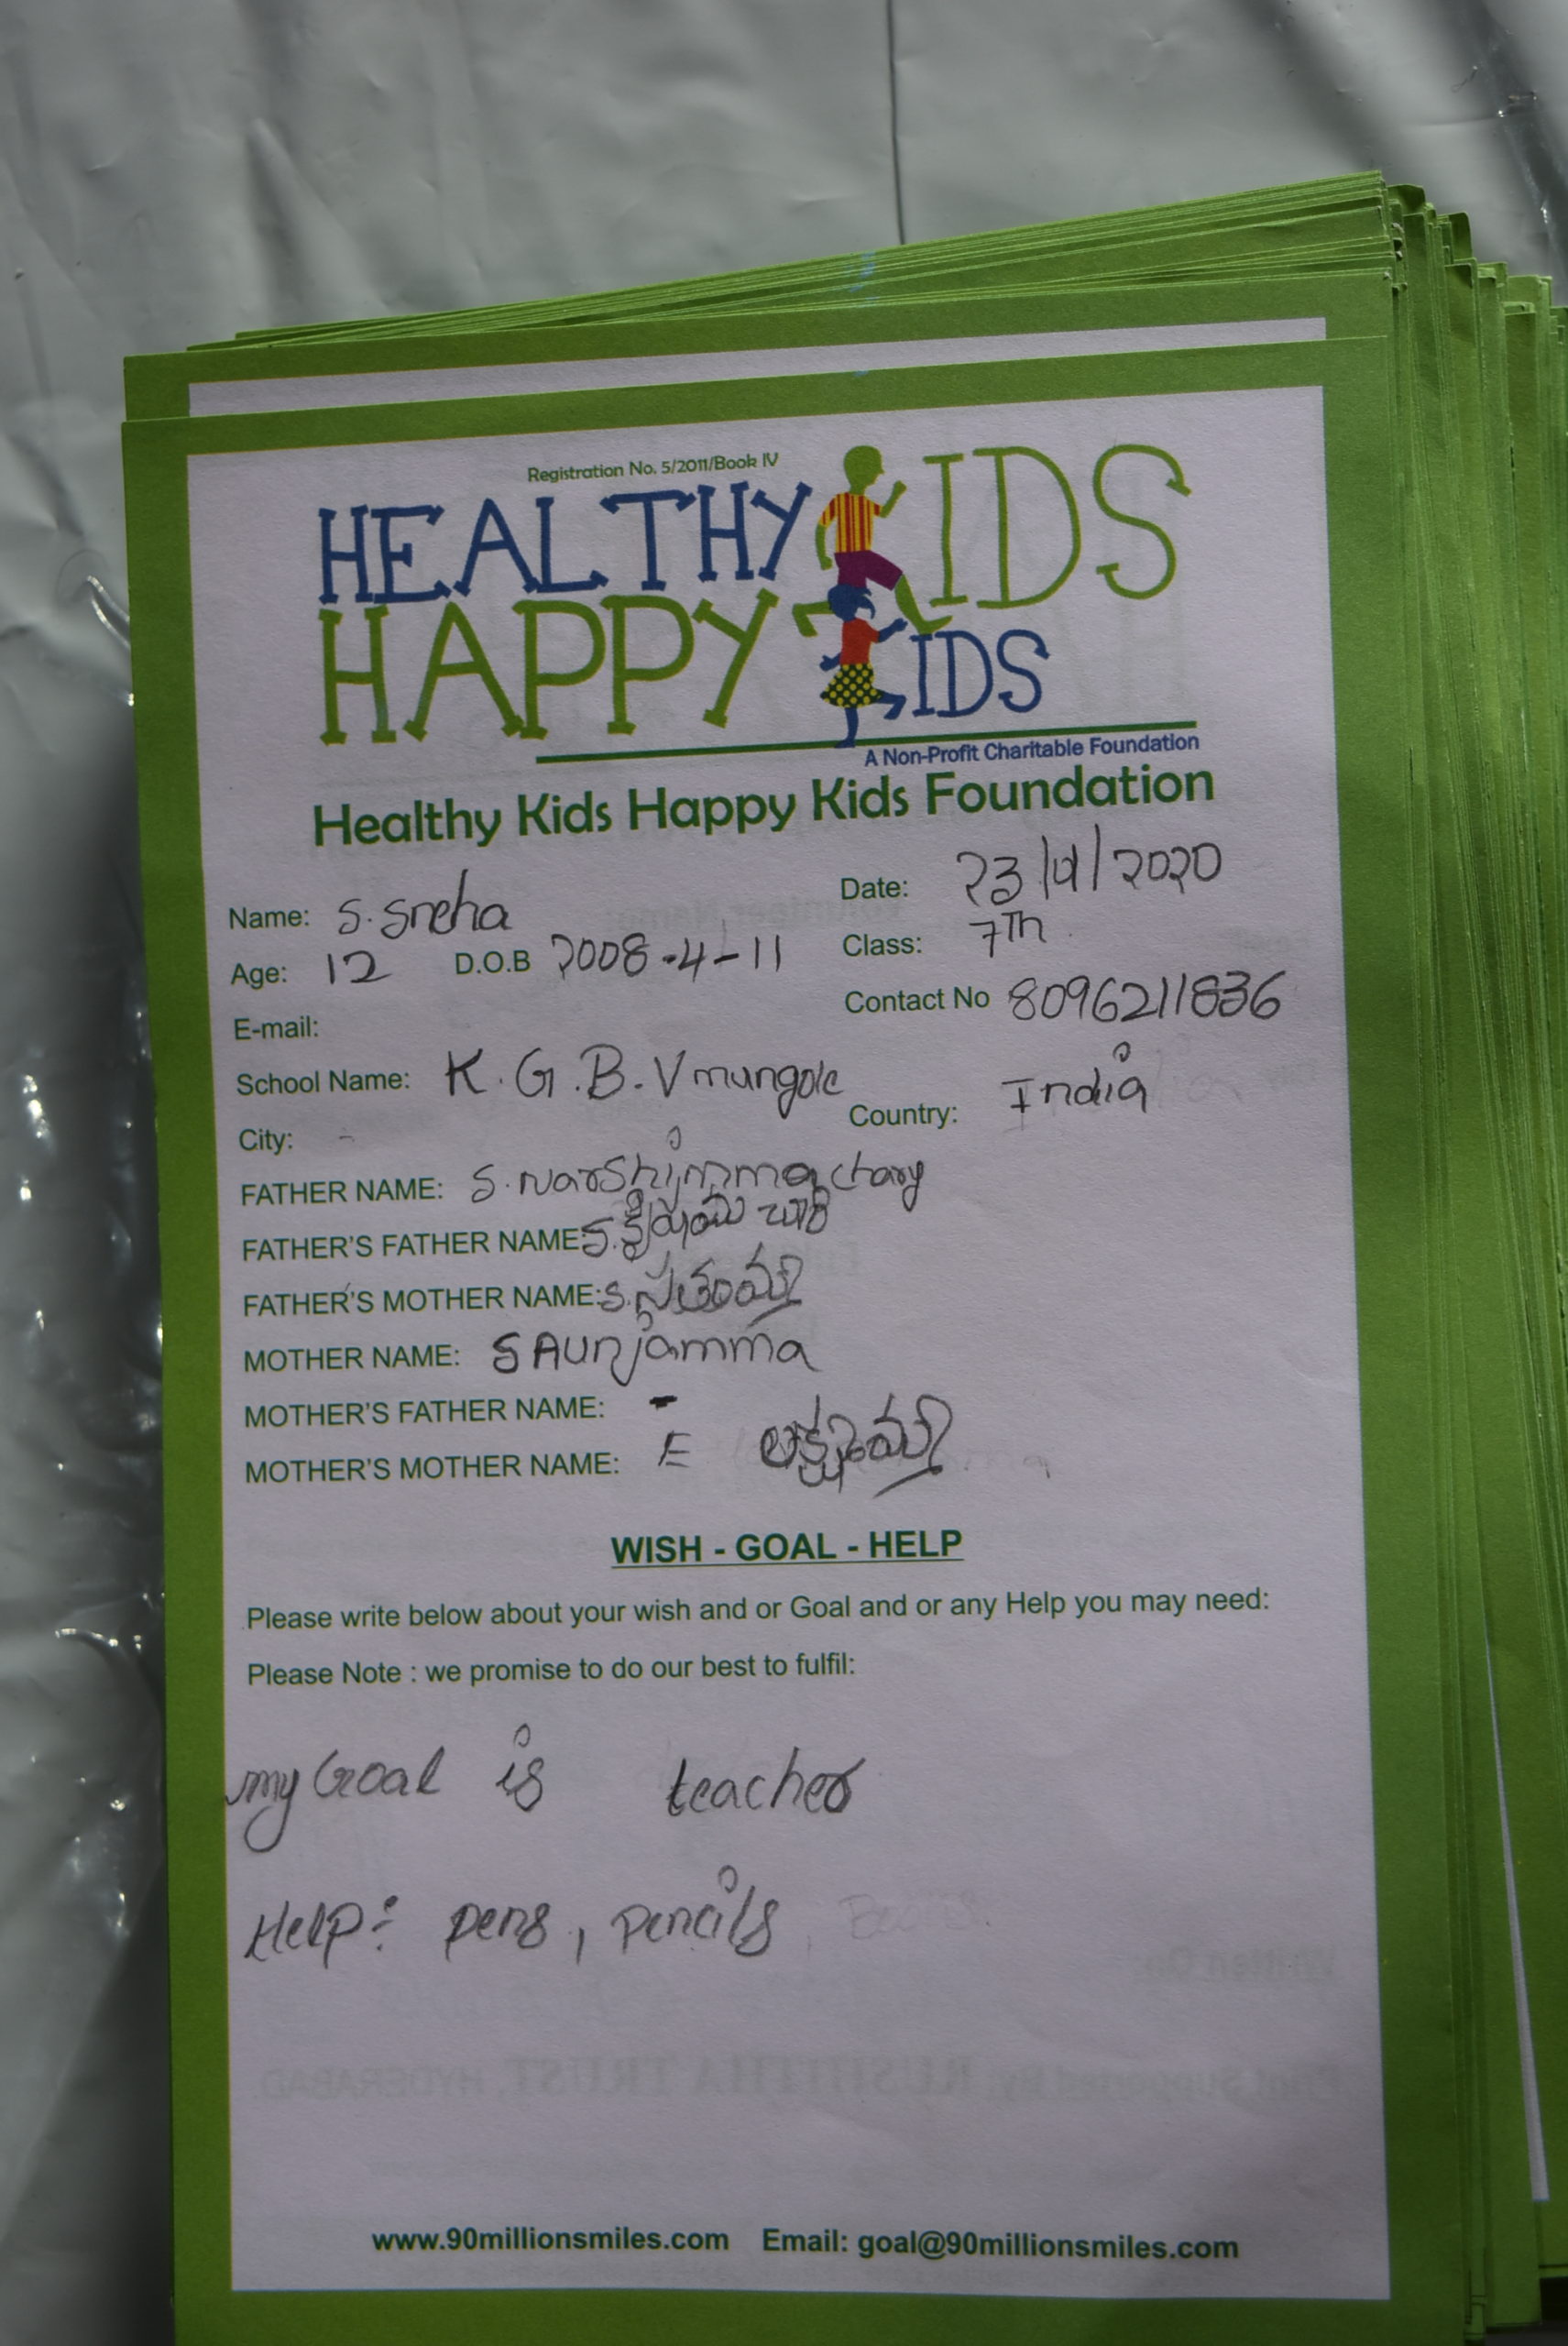 Registration No. 5/2011/Book IV
HEALTHY KIDS
HAPPY KIDS
A Non-Profit Charitable Foundation
Healthy Kids Happy Kids Foundation
Name: S. Sneha Date: 23/ /2020
Age: 12 D.O.B 2008-4-11 Class: 7th
E-mail: Contact No 8096211836
School Name: K.G.B.V mungole
City: - Country: India
FATHER NAME: S. narshimma chary
FATHER'S FATHER NAME: S.
FATHER'S MOTHER NAME: S.
MOTHER NAME: S Aunjamma
MOTHER'S FATHER NAME: -
MOTHER'S MOTHER NAME: E లక్ష్మమ్మ
WISH - GOAL - HELP
Please write below about your wish and or Goal and or any Help you may need:
Please Note : we promise to do our best to fulfil:
my Goal is teacher
Help: pens, pencils
www.90millionsmiles.com Email: goal@90millionsmiles.com